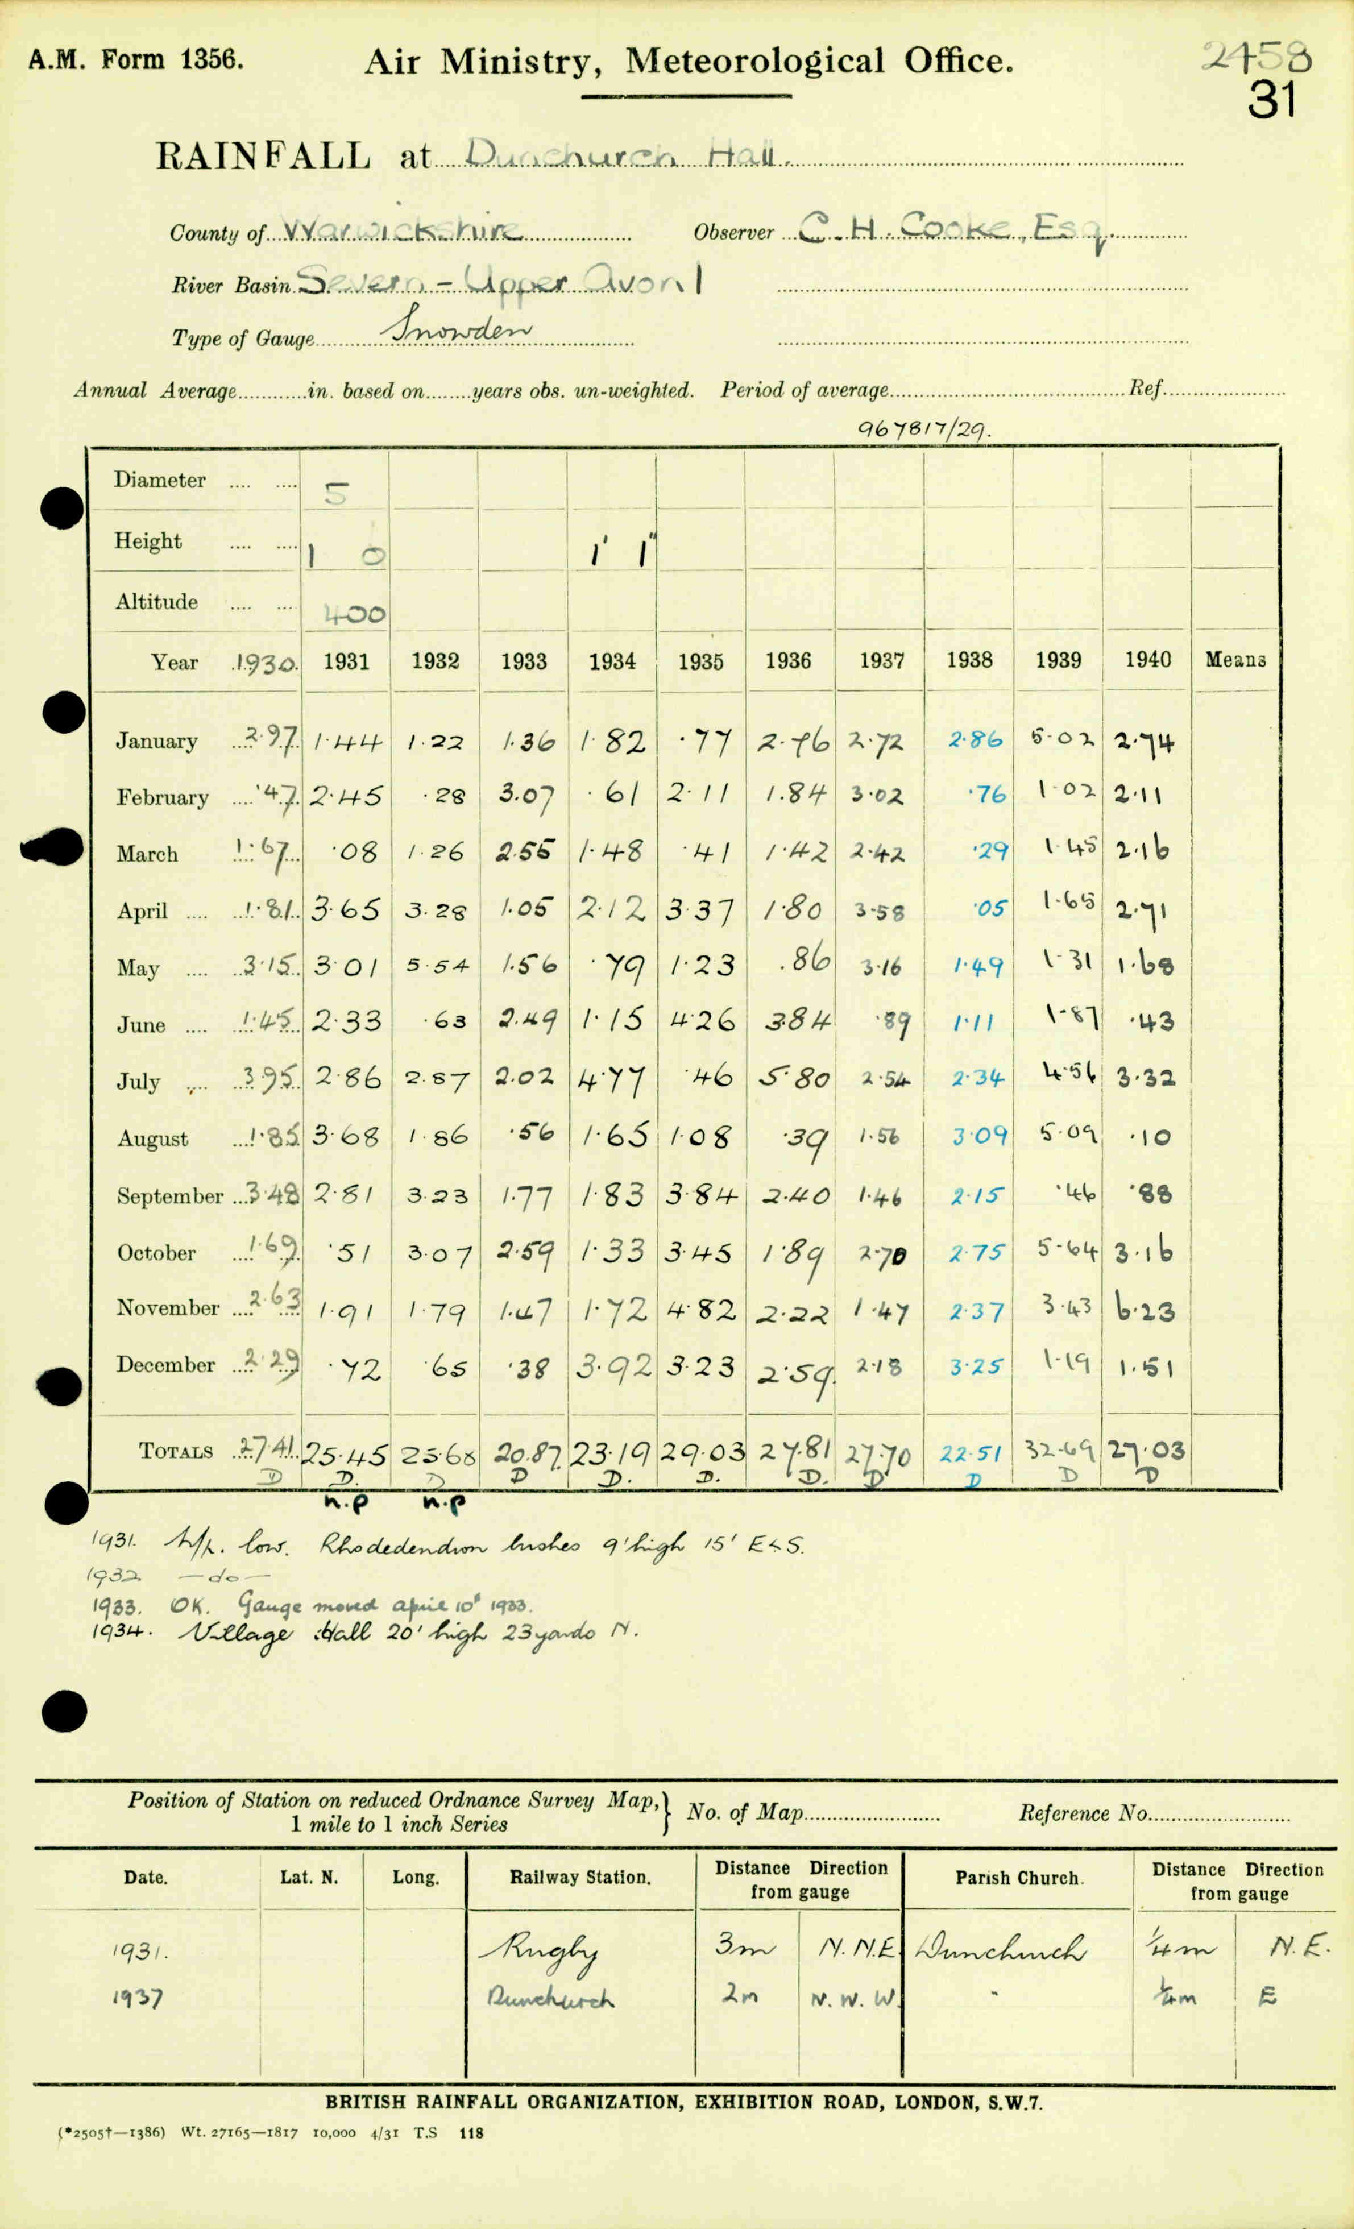 A.M. Form 1356.
Air Ministry, Meteorological Office.
2458
31
RAINFALL at Dunchurch Hall.
County of Warwickshire Observer C. H. Cooke, Esq.
River Basin Severn - Upper Avon 1
Type of Gauge Snowden
Annual Average in. based on years obs. un-weighted. Period of average Ref.
967817/29.
Diameter 5
Height 1 0 1' 1"
Altitude 400
Year 1930. 1931 1932 1933 1934 1935 1936 1937 1938 1939 1940 Means
January 2.97 1.44 1.22 1.36 1.82 .77 2.76 2.72 2.86 5.02 2.74
February .47 2.45 .28 3.07 .61 2.11 1.84 3.02 .76 1.02 2.11
March 1.67 .08 1.26 2.55 1.48 .41 1.42 2.42 .29 1.45 2.16
April 1.81 3.65 3.28 1.05 2.12 3.37 1.80 3.58 .05 1.65 2.71
May 3.15 3.01 5.54 1.56 .79 1.23 .86 3.16 1.49 1.31 1.68
June 1.45 2.33 .63 2.49 1.15 4.26 3.84 .89 1.11 1.87 .43
July 3.95 2.86 2.87 2.02 4.77 .46 5.80 2.54 2.34 4.56 3.32
August 1.85 3.68 1.86 .56 1.65 1.08 .39 1.56 3.09 5.09 .10
September 3.48 2.81 3.23 1.77 1.83 3.84 2.40 1.46 2.15 .46 .88
October 1.69 .51 3.07 2.59 1.33 3.45 1.89 2.70 2.75 5.64 3.16
November 2.63 1.91 1.79 1.47 1.72 4.82 2.22 1.47 2.37 3.43 6.23
December 2.29 .72 .65 .38 3.92 3.23 2.59. 2.18 3.25 1.19 1.51
TOTALS 27.41 25.45 25.68 20.87 23.19 29.03 27.81 27.70 22.51 32.69 27.03
D D. D D D. D. D. D D D D
n.p n.p
1931. low. Rhodedendron bushes 9' high 15' E & S.
1932 — do —
1933. OK. Gauge moved april 10th 1933.
1934. Village Hall 20' high 23 yards N.
Position of Station on reduced Ordnance Survey Map, 1 mile to 1 inch Series } No. of Map Reference No.
Date. Lat. N. Long. Railway Station. Distance Direction from gauge Parish Church. Distance Direction from gauge
1931. Rugby 3m N.N.E. Dunchurch 1/4m N.E.
1937 Dunchurch 2m N.W.W. " 1/4m E
BRITISH RAINFALL ORGANIZATION, EXHIBITION ROAD, LONDON, S.W.7.
(*2505†—1386) Wt. 27165—1817 10,000 4/31 T.S 118